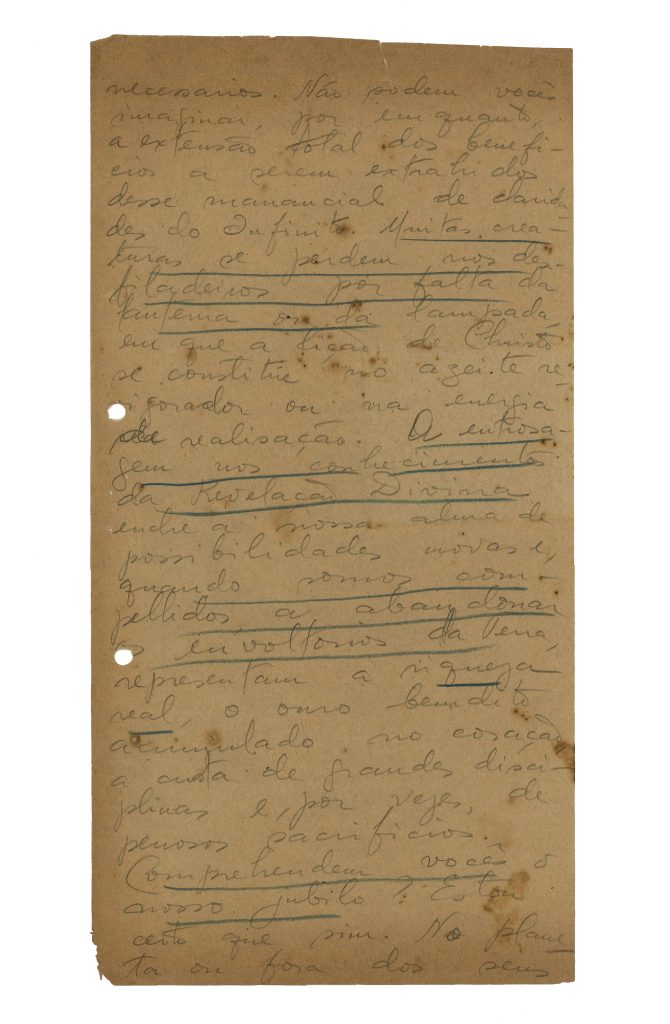 necessarios. Não podem vocês
imaginar, por emquanto,
a extensão total dos benefi-
cios a serem extrahidos
desse manancial de clarida-
des do Infinito. Muitas crea-
turas se perdem nos des-
filadeiros por falta da
lanterna ou da lampada,
em que a lição de Christo
se constitue no azeite re-
vigorador ou na energia
de realisação. A entrosa-
gem nos conhecimentos
da Revelação Divina
enche a nossa alma de
possibilidades novas e,
quando somos com-
pellidos a abandonar
os involtorios da Terra,
representam a riqueza
real, o ouro bendito
acumulado no coração
á custa de grandes disci-
plinas e, por vezes, de
penosos sacrificios.
Comprehendem vocês o
nosso jubilo? Estou
certo que sim. No plane-
ta ou fora dos seus